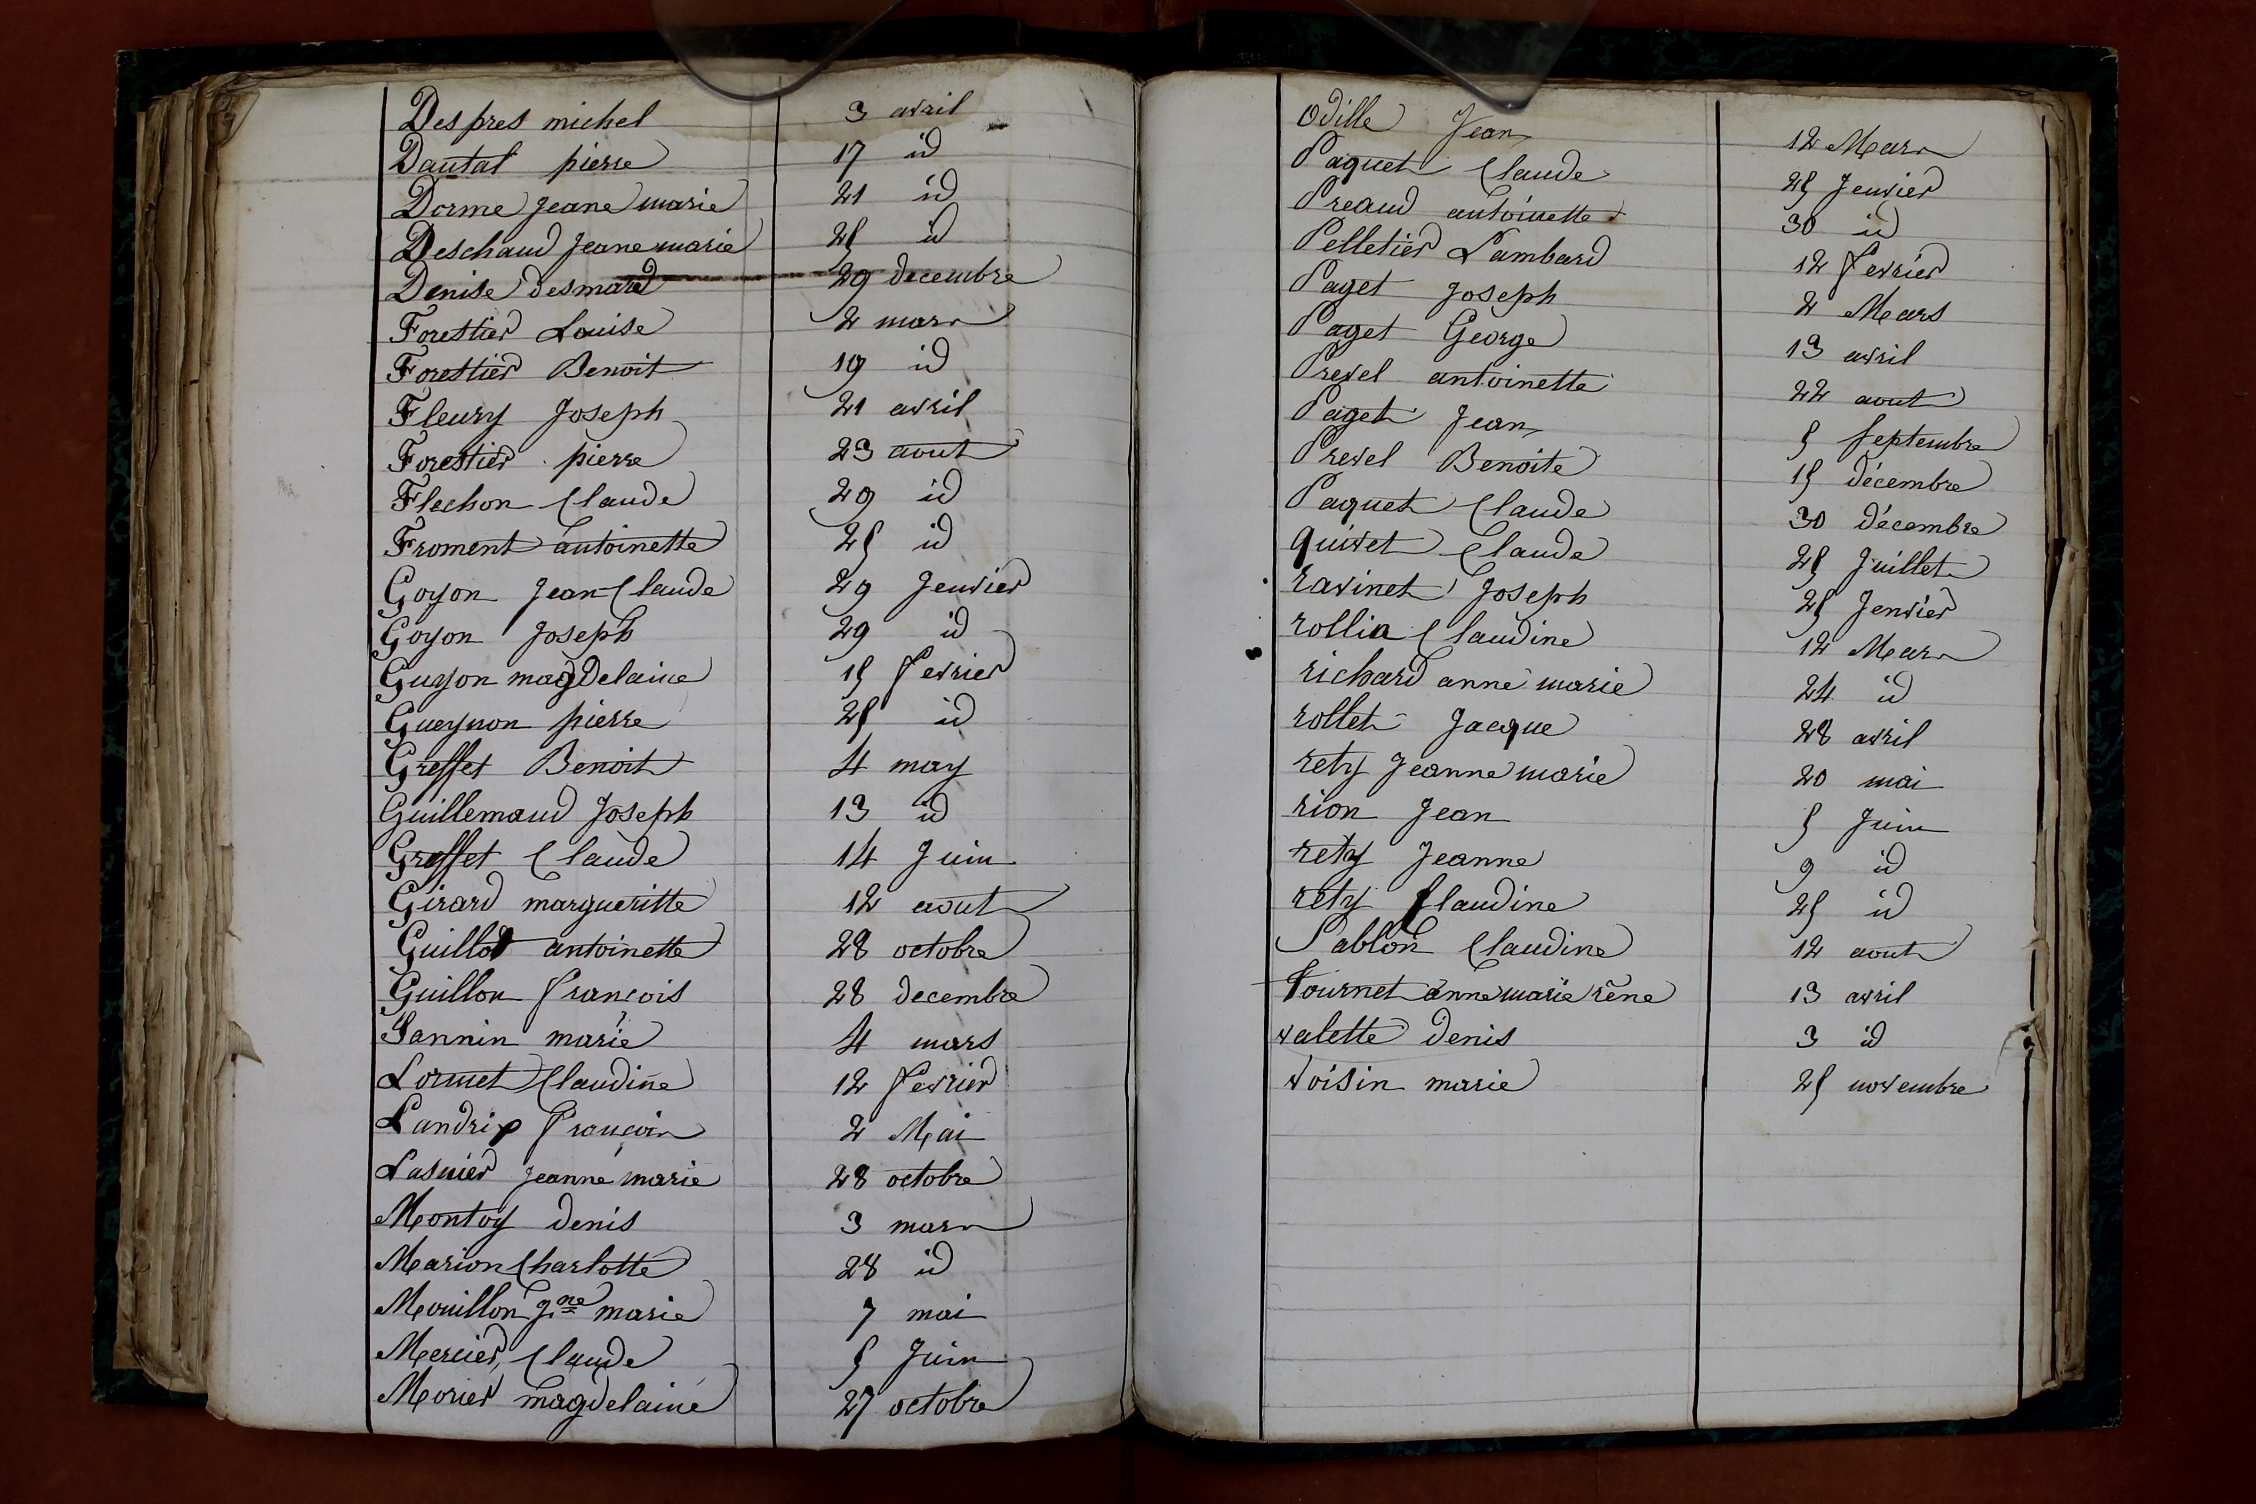 Despres michel 3 avril
Dautal pierre 17 id
Dorme Jeane marie 21 id
Deschaud Jeane marie 25 id
Denise desmard 29 decembre
Forestier Louise 2 mars
Forestier Benoit 19 id
Fleury Joseph 21 avril
Forestier pierre 23 aout
Flechon Claude 29 id
Froment antoinette 25 id
Goyon Jean Claude 29 Jenvier
Goyon Joseph 29 id
Guyon magdelaine 15 fevrier
Gueynon pierre 25 id
Greffet Benoit 4 may
Guillemaud Joseph 13 id
Greffet Claude 14 Juin
Girard margueritte 12 aout
Guillot antoinette 28 octobre
Guillon francois 28 decembre
Jannin marie 4 mars
Lornet Claudine 12 fevrier
Landrip francois 2 Mai
Lasnier Jeanne marie 28 octobre
Montoy denis 3 mars
Marion Charlotte 28 id
Mouillon Jne marie 7 mai
Mercier Claude 5 Juin
Morier magdelaine 27 octobre
Odille Jean 12 Mars
Paquet Claude 25 Jenvier
Preaud antoinette 30 id
Pelletier Lambard 12 fevrier
Paget Joseph 2 Mars
Paget George 13 avril
Prevel antoinette 22 aout
Paget Jean 5 septembre
Prevel Benoite 15 décembre
Paquet Claude 30 décembre
quivet Claude 25 Juillet
ravinet Joseph 25 Jenvier
rollin Claudine 12 Mars
richard anne marie 24 id
rollet Jacque 28 avril
rety Jeanne marie 20 mai
rion Jean 5 Juin
rety Jeanne 9 id
rety Claudine 25 id
Sablon Claudine 12 aout
Tournet anne marie réne 13 avril
valette denis 3 id
voisin marie 25 novembre